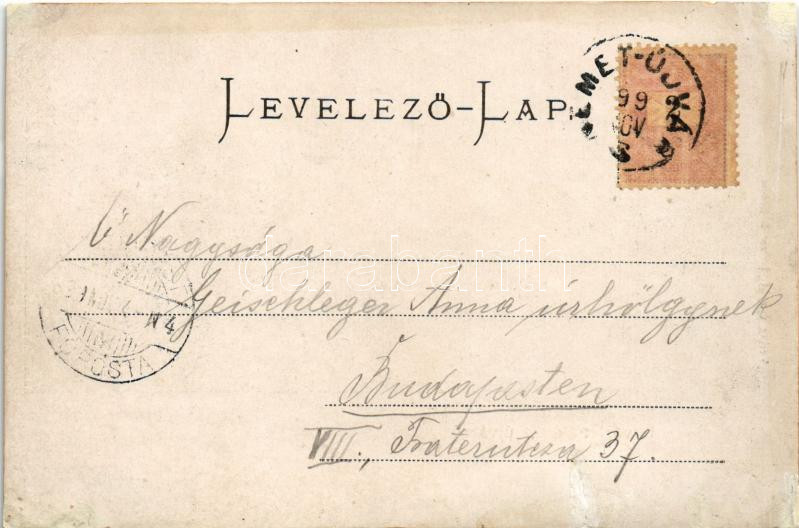 LEVELEZŐ-LAP
NÉMET-ÚJVÁR
99 NOV
Ő Nagysága
Geischleger Anna úrhölgynek
Budapesten
VIII., Frater utcza 37.
FŐPOSTA
N4
darabanth